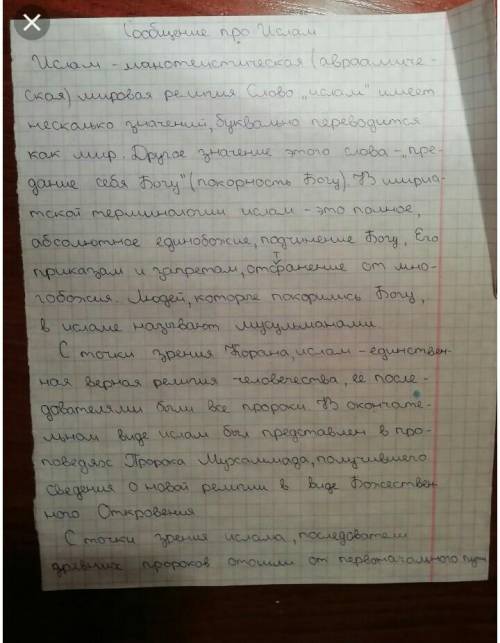 Сообщение про Ислам
Ислам - манотеистическая (авраамиче-
ская) мировая религия Слово „ислам" имеет
несколько значений, буквально переводится
как мир. Другое значение этого слова - „пре-
дание себя Богу" (покорность Богу). В шириа-
тской терминологии ислам - это полное,
абсолютное единобожие, подчинение Богу, Его
приказам и запретам, отстранение от мно-
гобожия. Людей, которые покорились Богу,
в исламе называют мусульманами
С точки зрения Корана, ислам - единствен-
ная верная религия человечества, ее после-
дователями были все пророки. В окончате-
льном виде ислам был представлен в про-
поведях Пророка Мухаммада, получившего
сведения о новой религии в виде Божествен-
ного Откровения
С точки зрения ислама, последователи
древних пророков отошли от первоначального пути